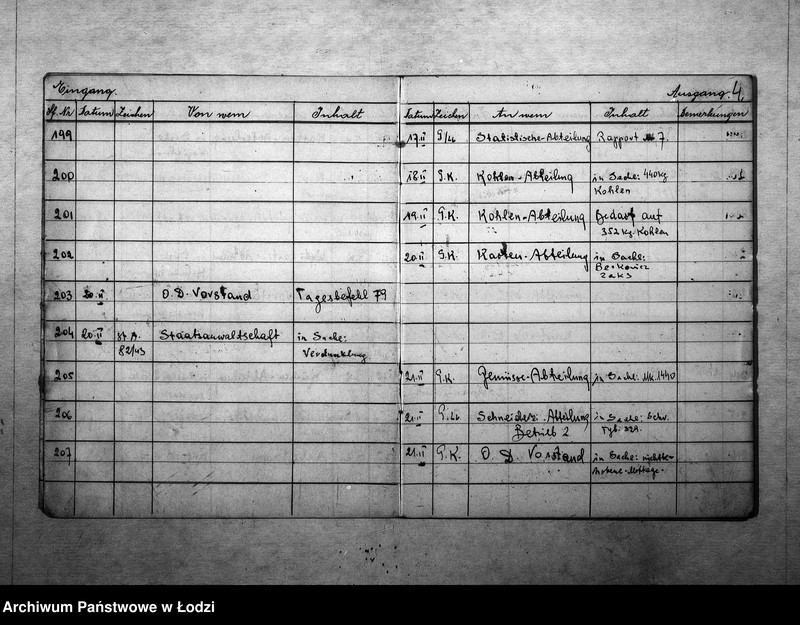 Eingang.
Ausgang. 4.
Lf. Nr Datum Zeichen Von wem Inhalt Datum Zeichen An wem Inhalt Bemerkungen
199 17.II G/Li Statistische-Abteilung Rapport 7.
200 18.II G.K. Kohlen-Abteilung in Sache: 440 kg
Kohlen
201 19.II G.K. Kohlen-Abteilung Bedarf auf
352 kg. Kohlen
202 20.II G.K. Karten-Abteilung in Sache:
Berkowicz
Zaks
203 20.II O.D. Vorstand Tagesbefehl 79
204 20.II St.A. Staatsanwaltschaft in Sache:
82/43 Verdunklung
205 21.II G.K. Gemüse-Abteilung in Sache: Mk. 1440
206 21.II G.Li Schneider-Abteilung in Sache:
Betrieb 2
207 21.II G.K. O.D. Vorstand in Sache:
Archiwum Państwowe w Łodzi